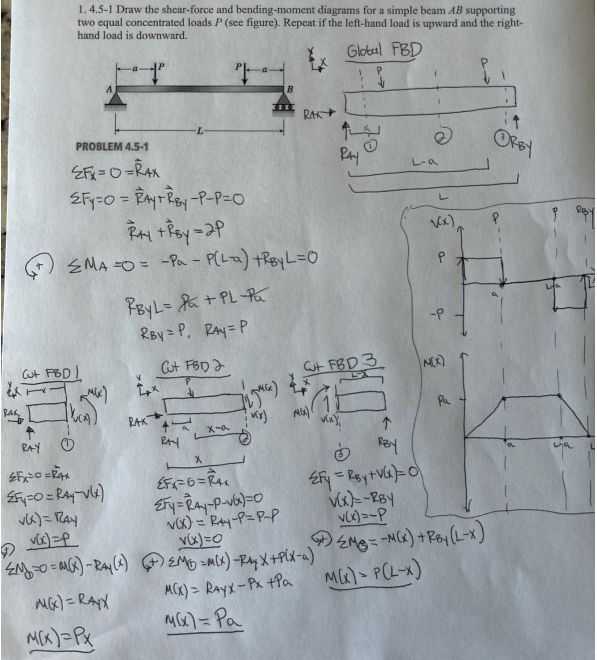 1. 4.5-1 Draw the shear-force and bending-moment diagrams for a simple beam AB supporting
two equal concentrated loads P (see figure). Repeat if the left-hand load is upward and the right-
hand load is downward.
Global FBD
y
x
a P P a
A B
L
PROBLEM 4.5-1
P P
RAx
RAy a ① ② ③ RBy
L-a
L
ΣFx=0=RAx
ΣFy=0=RAy+RBy-P-P=0
RAy+RBy=2P
ΣMA=0= -Pa - P(L-a) +RByL=0
RByL= Pa + PL - Pa
RBy=P, RAy=P
V(x) P P RBy
P
a L-a
-P
M(x)
Pa
a L-a L
Cut FBD 1
x
M(x)
RAx V(x)
RAy ①
ΣFx=0=RAx
ΣFy=0=RAy-V(x)
V(x)=RAy
V(x)=P
ΣM①=0=M(x)-RAy(x)
M(x)=RAyx
M(x)=Px
Cut FBD 2
P
M(x)
RAx V(x)
RAy a x-a ②
x
ΣFx=0=RAx
ΣFy=RAy-P-V(x)=0
V(x)=RAy-P=P-P
V(x)=0
=M(x)-RAyx+P(x-a)
M(x)=RAyx-Px+Pa
M(x)=Pa
Cut FBD 3
L-x
M(x) V(x)
③ RBy
ΣFy=RBy+V(x)=0
V(x)=-RBy
V(x)=-P
=-M(x)+RBy(L-x)
M(x)=P(L-x)